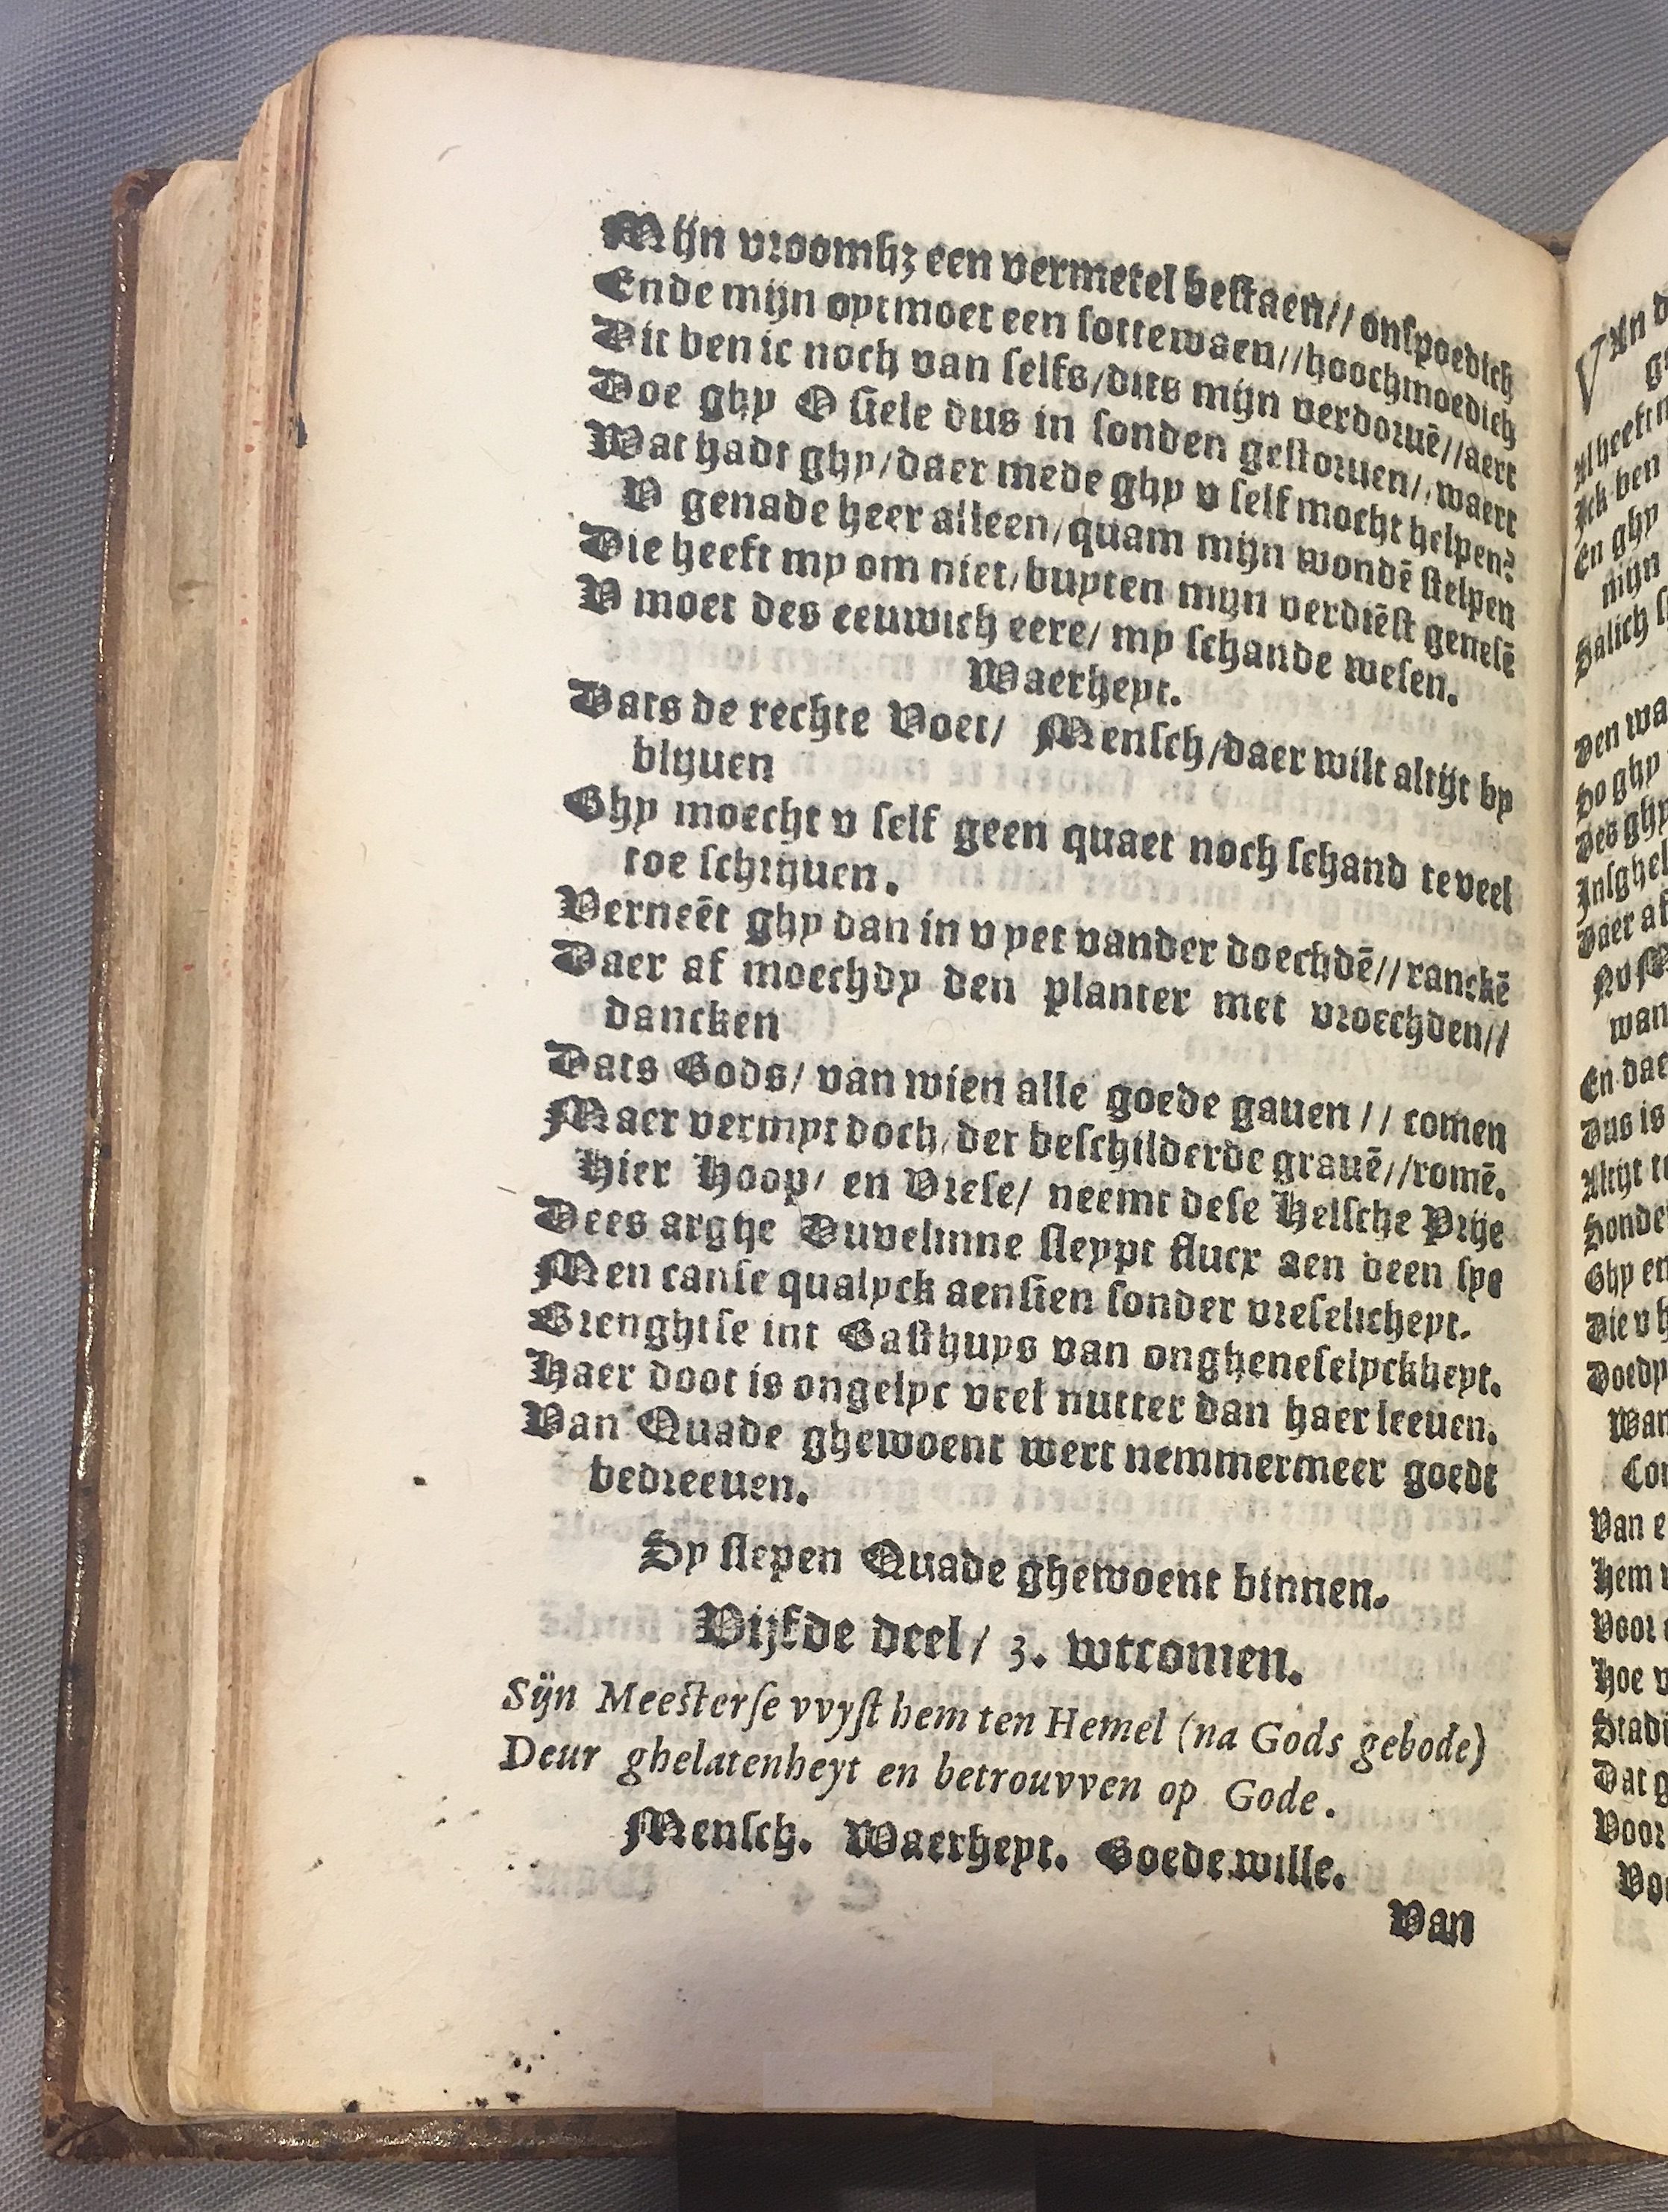 Mijn vroomhꝫ een vermetel bestaen// onspoedich
Ende mijn optmoet een sottewaen//hoochmoedich
Dit ben ic noch van selfs/dits mijn verdoruē//aert
Doe ghy O siele dus in sonden gestoruen//waert
Wat hadt ghy/daer mede ghy v self mocht helpen?
V genade heer alleen/quam mijn wondē stelpen
Die heeft my om niet/buyten mijn verdiēst genesē
V moet des eeuwich eere/ my schande wesen.
Waerheyt.
Dats de rechte Voet/ Mensch/daer wilt altijt by
blijuen
Ghy moecht v self geen quaet noch schand te veel
toe schrijuen.
Verneēt ghy dan in v yet vander doechdē//ranckē
Daer af moechdy den planter met vroechden//
dancken
Dats Gods/ van wien alle goede gauen // comen
Maer vermyt doch/der beschilderde grauē//romē.
Hier Hoop/ en Vrese/ neemt dese Helsche Prije
Dees arghe Duvelinne sleypt flucx aen deen sye
Men canse qualyck aensien sonder vreselicheyt.
Brenghtse int Gasthuys van ongheneselyckheyt.
Haer doot is ongelyc veel nutter dan haer leeuen.
Van Quade ghewoent wert nemmermeer goedt
bedreeuen.
Sy slepen Quade ghewoent binnen.
Vijfde deel/ 3. wtcomen.
Sijn Meesterse vvyst hem ten Hemel (na Gods gebode)
Deur ghelatenheyt en betrouvven op Gode.
Mensch. Waerheyt. Goede wille.
Van
VAn d
Al heeft
Ick ben
En ghy
mijn
Salich
Den wa
So ghy
Des ghy
Insghel
Daer af
wan
En dae
Dus is
Altijt
Sonde
Ghy en
Die v h
Doedy
Wan
Van e
Hem
Voor
Hoe v
Dat g
Voor